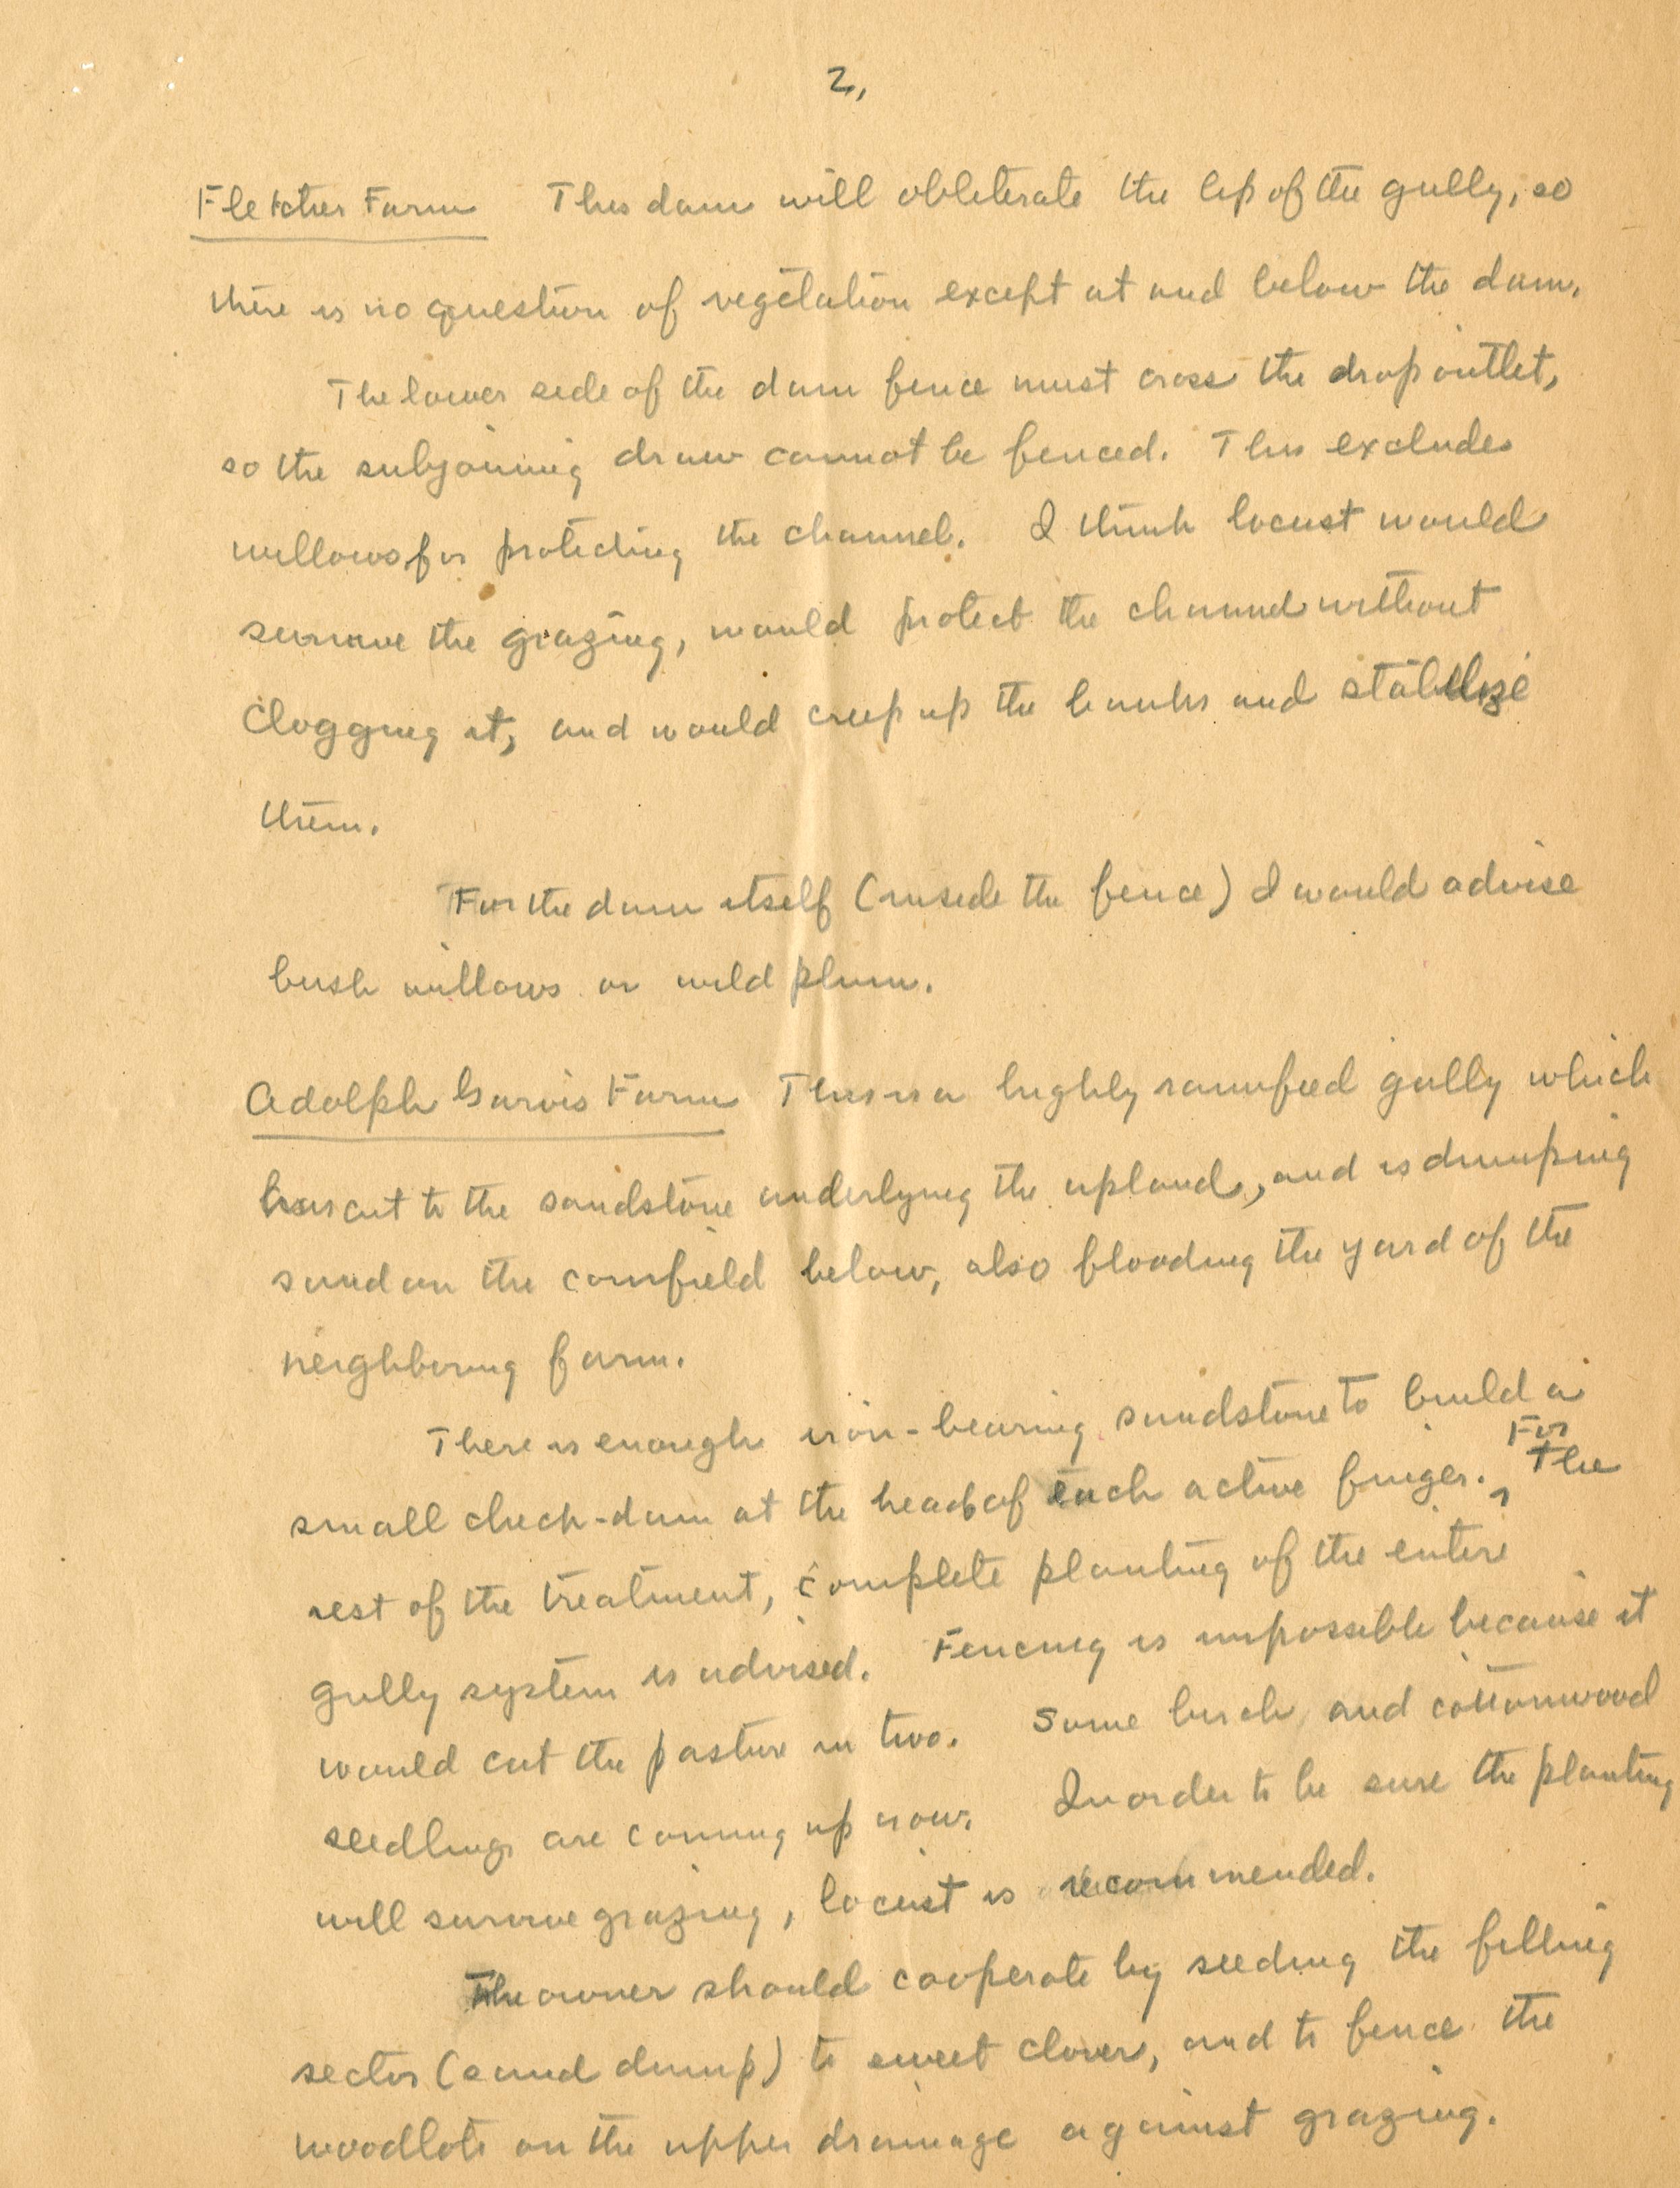 2,
Fletcher Farm This dam will obliterate the lip of the gully, so
there is no question of vegetation except at and below the dam.
The lower side of the dam fence must cross the drop outlet,
so the subjoining draw cannot be fenced. This excludes
willows for protecting the channel. I think locust would
survive the grazing, would protect the channel without
clogging it, and would creep up the banks and stabilize
them.
For the dam itself (inside the fence) I would advise
bush willows or wild plum.
Adolph Farm This is a highly ramified gully which
has cut to the sandstone underlying the upland, and is dumping
sand on the cornfield below, also flooding the yard of the
neighboring farm.
There is enough iron-bearing sandstone to build a
For
small check-dam at the head of each active finger. The
rest of the treatment, complete planting of the entire
gully system is advised. Fencing is impossible because it
would cut the pasture in two. Some birch and cottonwood
seedlings are coming up now. In order to be sure the planting
will survive grazing, locust is recommended.
The owner should cooperate by seeding the filling
sector (sand dump) to sweet clover, and to fence the
woodlots on the upper drainage against grazing.